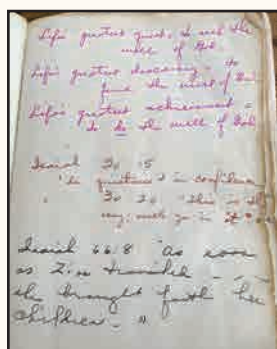 Life's greatest quest - to seek the
will of God
Life's greatest discovery - to
find the will of God
Life's greatest achievement -
to do the will of God
Isaiah 30 15
"In quietness & in confidence
" 30 21 "This is the
way: walk ye in it
Isaiah 66:8 "As soon
as Zion travailed -
she brought forth her
children - "